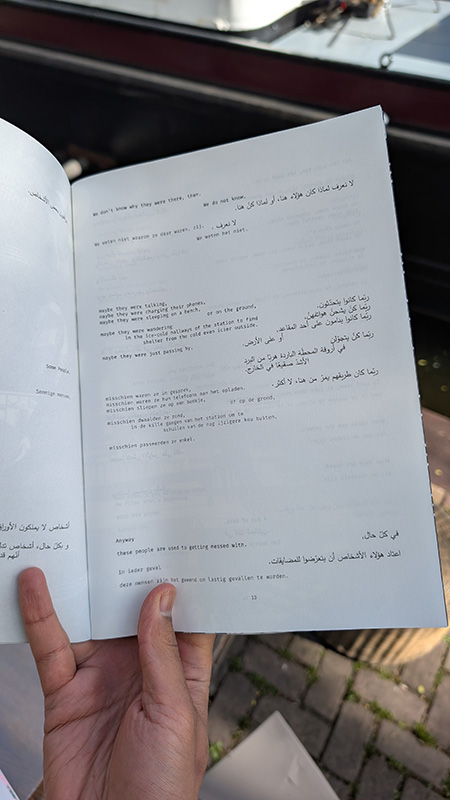 We don't know why they were there, then.
We do not know.
لا نعرف لماذا كان هؤلاء هنا، أو لماذا كنّ هنا.
لا نعرف.
We weten niet waarom ze daar waren.
We weten het niet.
maybe they were talking,
maybe they were charging their phones,
maybe they were sleeping on a bench,
or on the ground,
maybe they were wandering
in the ice-cold hallways of the station to find
shelter from the cold even icier outside.
maybe they were just passing by.
ربّما كانوا يتحدّثون.
ربّما كنّ يشحنّ هواتفهنّ.
ربّما كانوا ينامون على أحد المقاعد.
أو على الأرض.
ربّما كنّ يتجوّلن
في أروقة المحطة الباردة هربًا من البرد
الأشدّ صقيعًا في الخارج.
ربّما كان طريقهم يمرّ من هنا، لا أكثر.
misschien waren ze in gesprek,
misschien waren ze hun telefoons aan het opladen,
misschien sliepen ze op een bankje,
of op de grond,
misschien dwaalden ze rond,
in de kille gangen van het station om te
schuilen van de nog ijzigere kou buiten.
misschien passeerden ze enkel.
Anyway
these people are used to getting messed with.
in ieder geval
deze mensen zijn het gewend om lastig gevallen te worden.
في كلّ حال،
اعتاد هؤلاء الأشخاص أن يتعرّضوا للمضايقات.
13
Some People,
Sommige mensen,
أشخاص لا يملكون الأوراق
و بكلّ حال، أشخاص